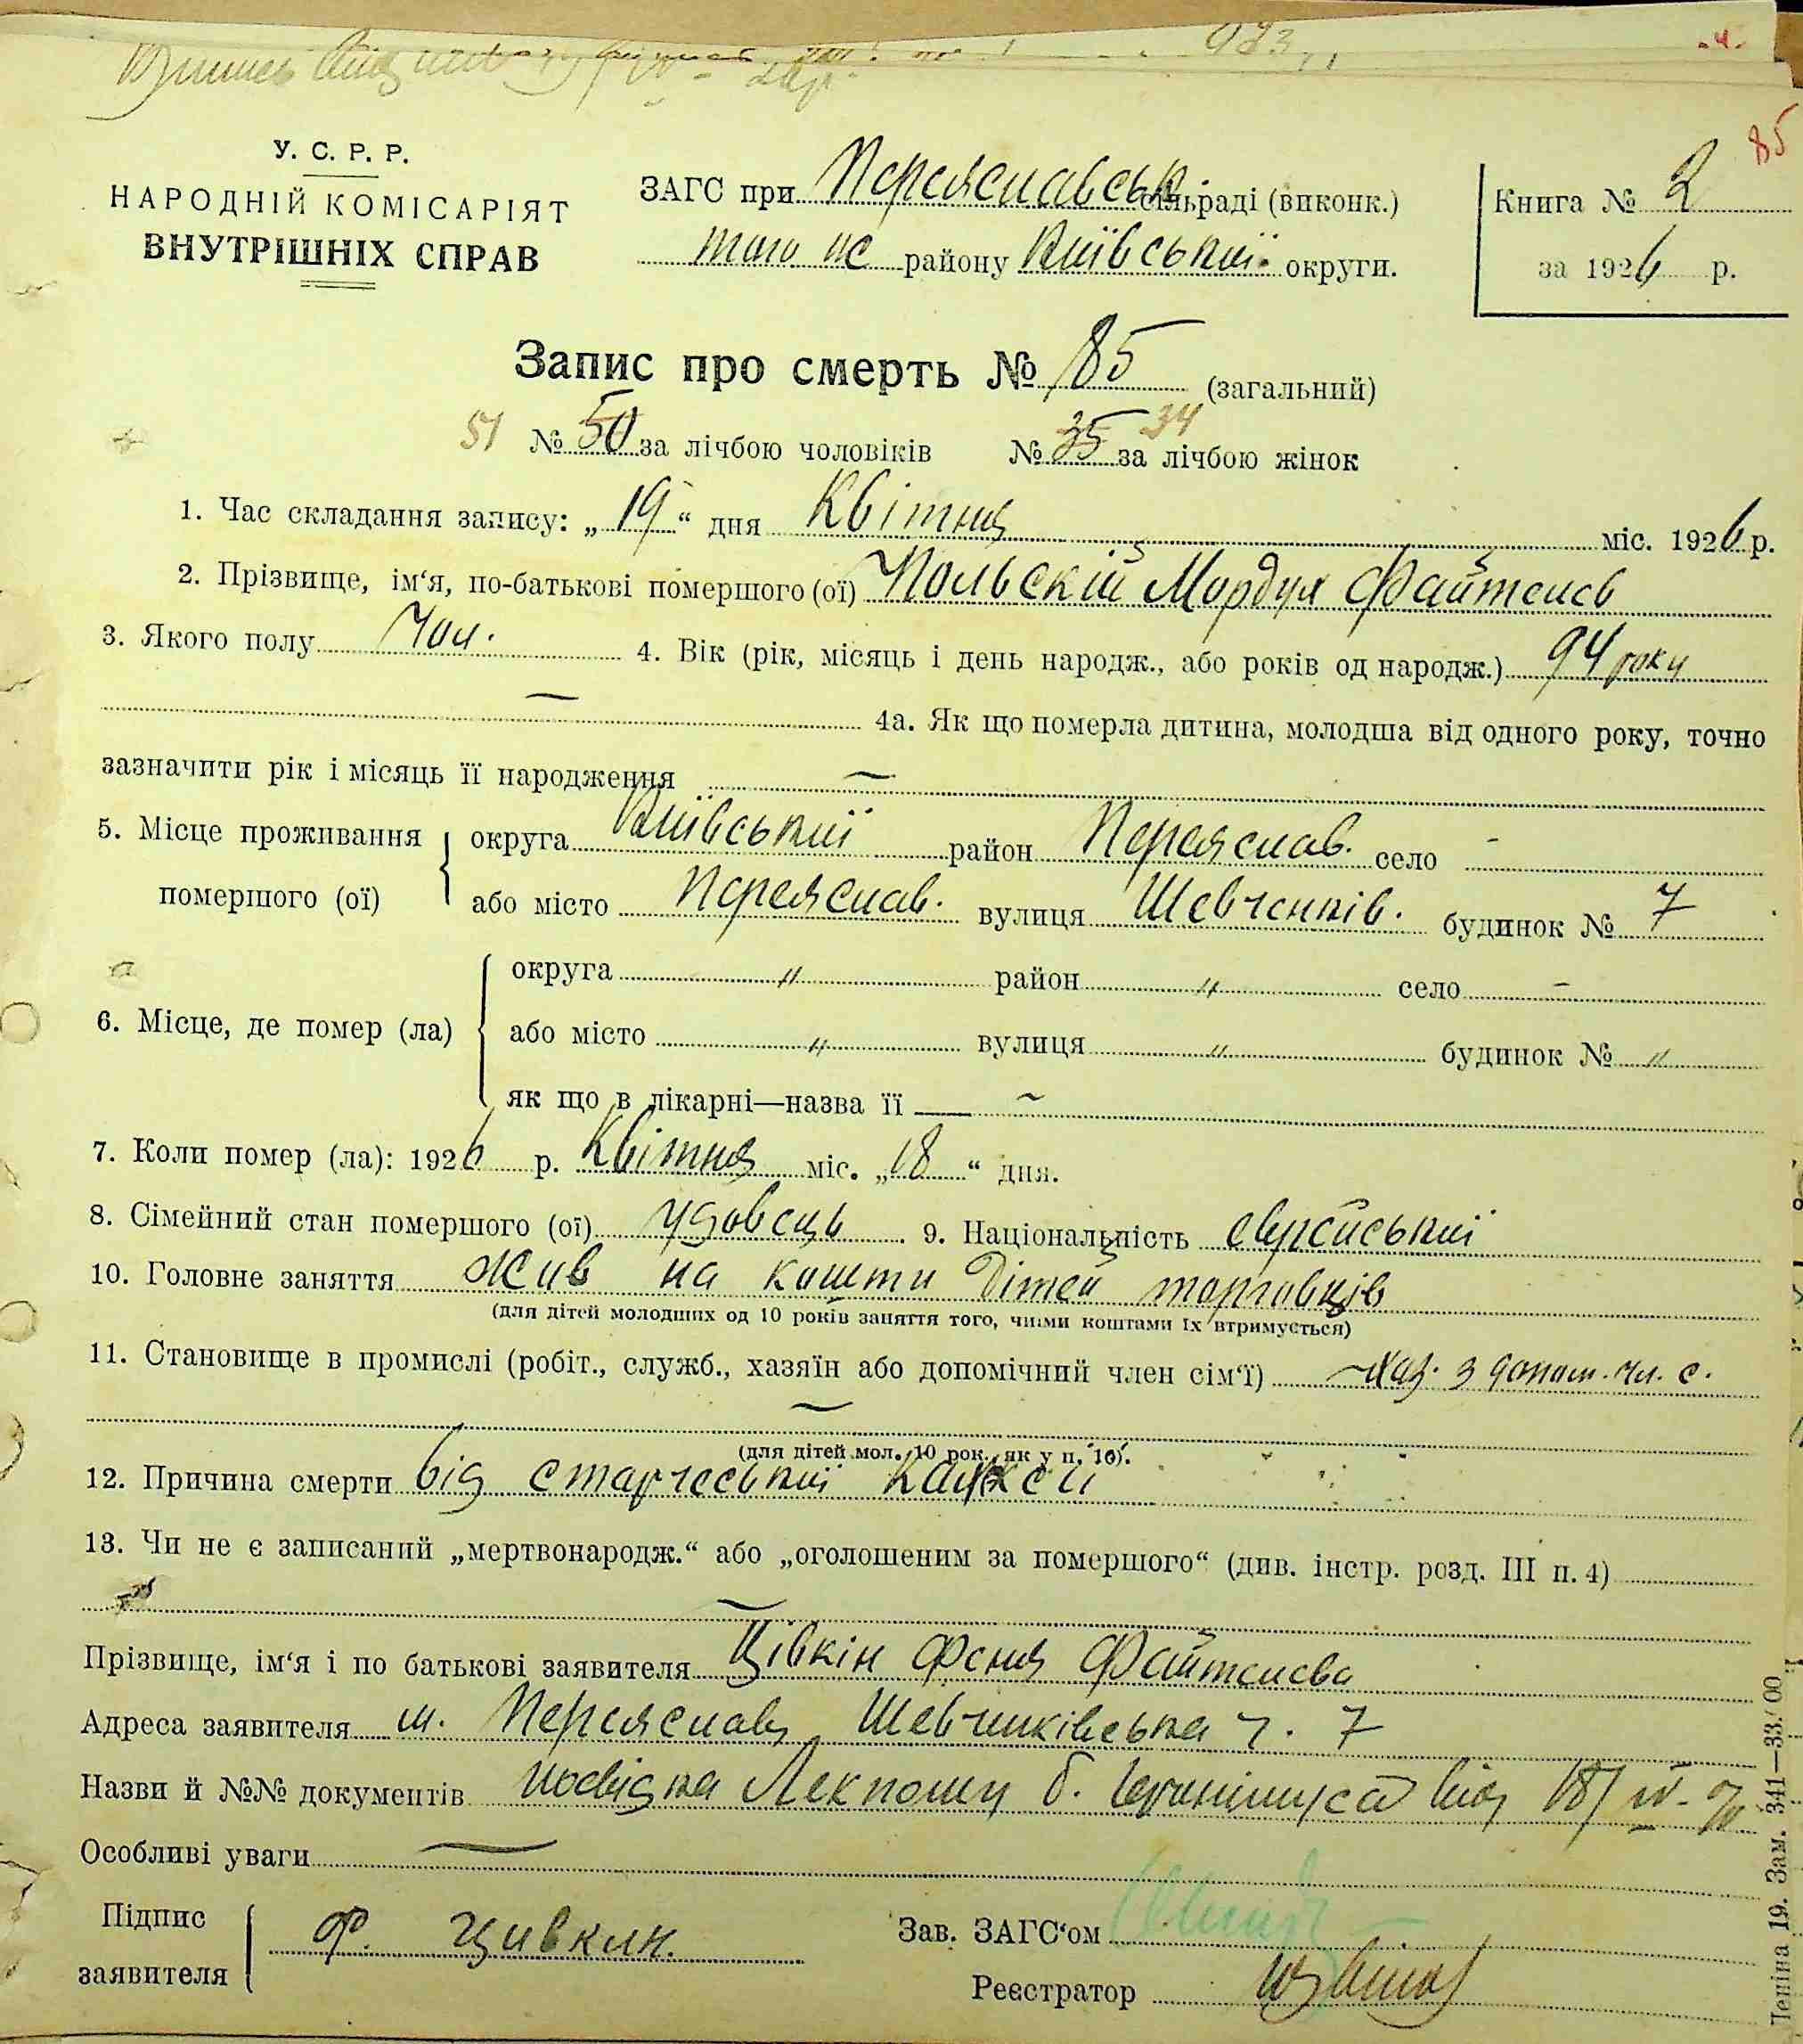 923
85
У. С. Р. Р.
НАРОДНІЙ КОМІСАРІЯТ
ВНУТРІШНІХ СПРАВ
ЗАГС при Переяславськ сільраді (виконк.)
того же району Київської округи.
Книга № 2
за 1926 р.
Запис про смерть № 85 (загальний)
51 № 50 за лічбою чоловіків № 35 34 за лічбою жінок
1. Час складання запису: „19“ дня Квітня міс. 1926 р.
2. Прізвище, ім‘я, по-батькові помершого (ої) Польскій Мордух Файтелів
3. Якого полу Чол. 4. Вік (рік, місяць і день народж., або років од народж.) 94 роки
4а. Як що померла дитина, молодша від одного року, точно
зазначити рік і місяць її народження
5. Місце проживання помершого (ої)
округа Київської район Переяслав. село -
або місто Переяслав. вулиця Шевченків. будинок № 7
6. Місце, де помер (ла)
округа " район " село -
або місто " вулиця " будинок № "
як що в лікарні—назва її
7. Коли помер (ла): 1926 р. Квітня міс. „18“ дня.
8. Сімейний стан помершого (ої) удовець 9. Національність єврейської
10. Головне заняття Жив на кошти дітей торговців
(для дітей молодших од 10 років заняття того, чиїми коштами їх втримується)
11. Становище в промислі (робіт., служб., хазяїн або допомічний член сім‘ї) Хаз. з допом. чл. с.
(для дітей мол. 10 рок., як у п. 10).
12. Причина смерти від старческої
13. Чи не є записаний „мертвонародж.“ або „оголошеним за помершого“ (див. інстр. розд. III п. 4)
Прізвище, ім‘я і по батькові заявителя Цівкін Феня Файтелева
Адреса заявителя м. Переяслав, Шевченківська ч. 7
Назви й №№ документів посвідка Лекпому б. від 18/IV-
Особливі уваги
Підпис заявителя Ф. Цивкин.
Зав. ЗАГС‘ом
Реєстратор
Леніна 19. Зам. 341—33.